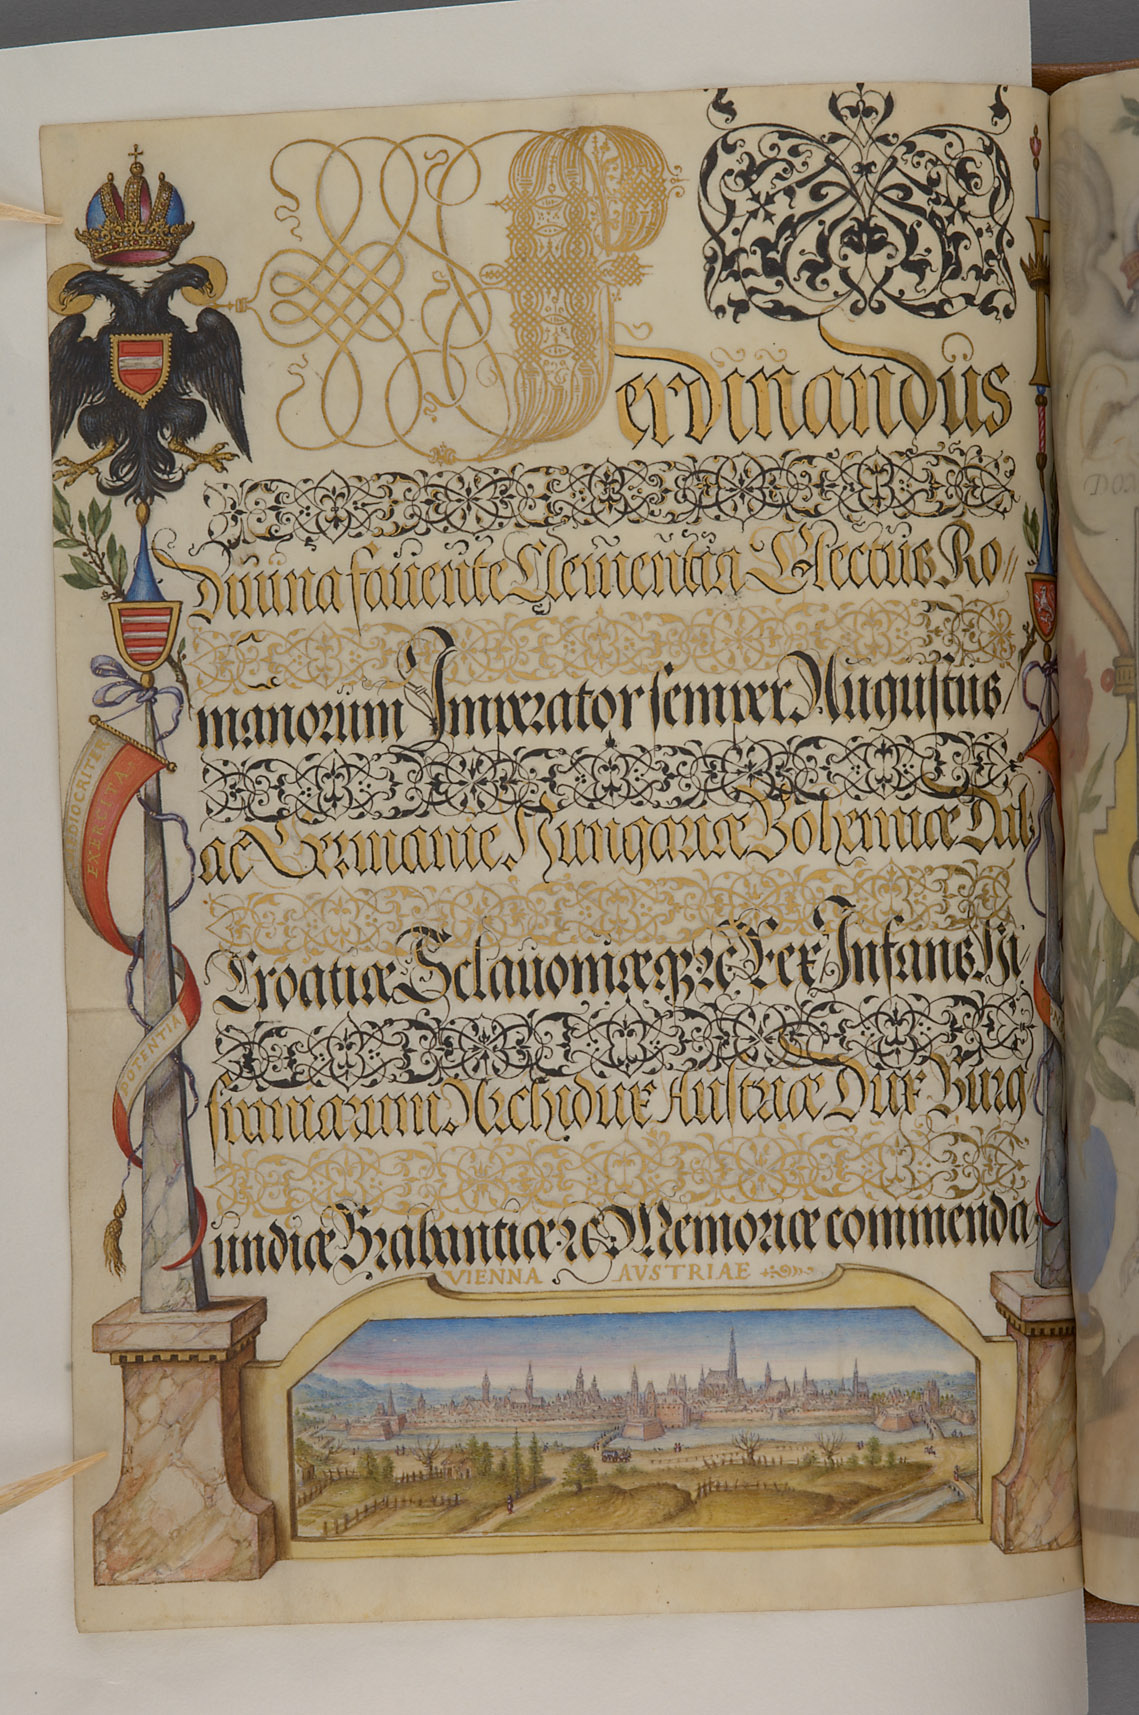 Ferdinandus
Diuina fauente Clementia Electus Ro⸗
manorum Imperator semper Augustus
ac Germanie Hungariæ Bohemiæ Dal
Croatiæ Sclauoniæqꝫ ꝛc Rex Infans Hi
spaniarum. Archidux Austriæ Dux Burg
undiæ Brabantiæ ꝛc Memoriæ commenda
EDIOCRITER
EXERCITA
POTENTIA
VIENNA AVSTRIAE